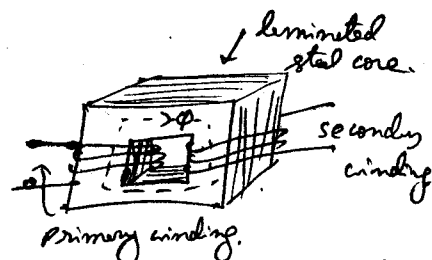 laminated
steel core.
φ
secondry
winding
primary winding.